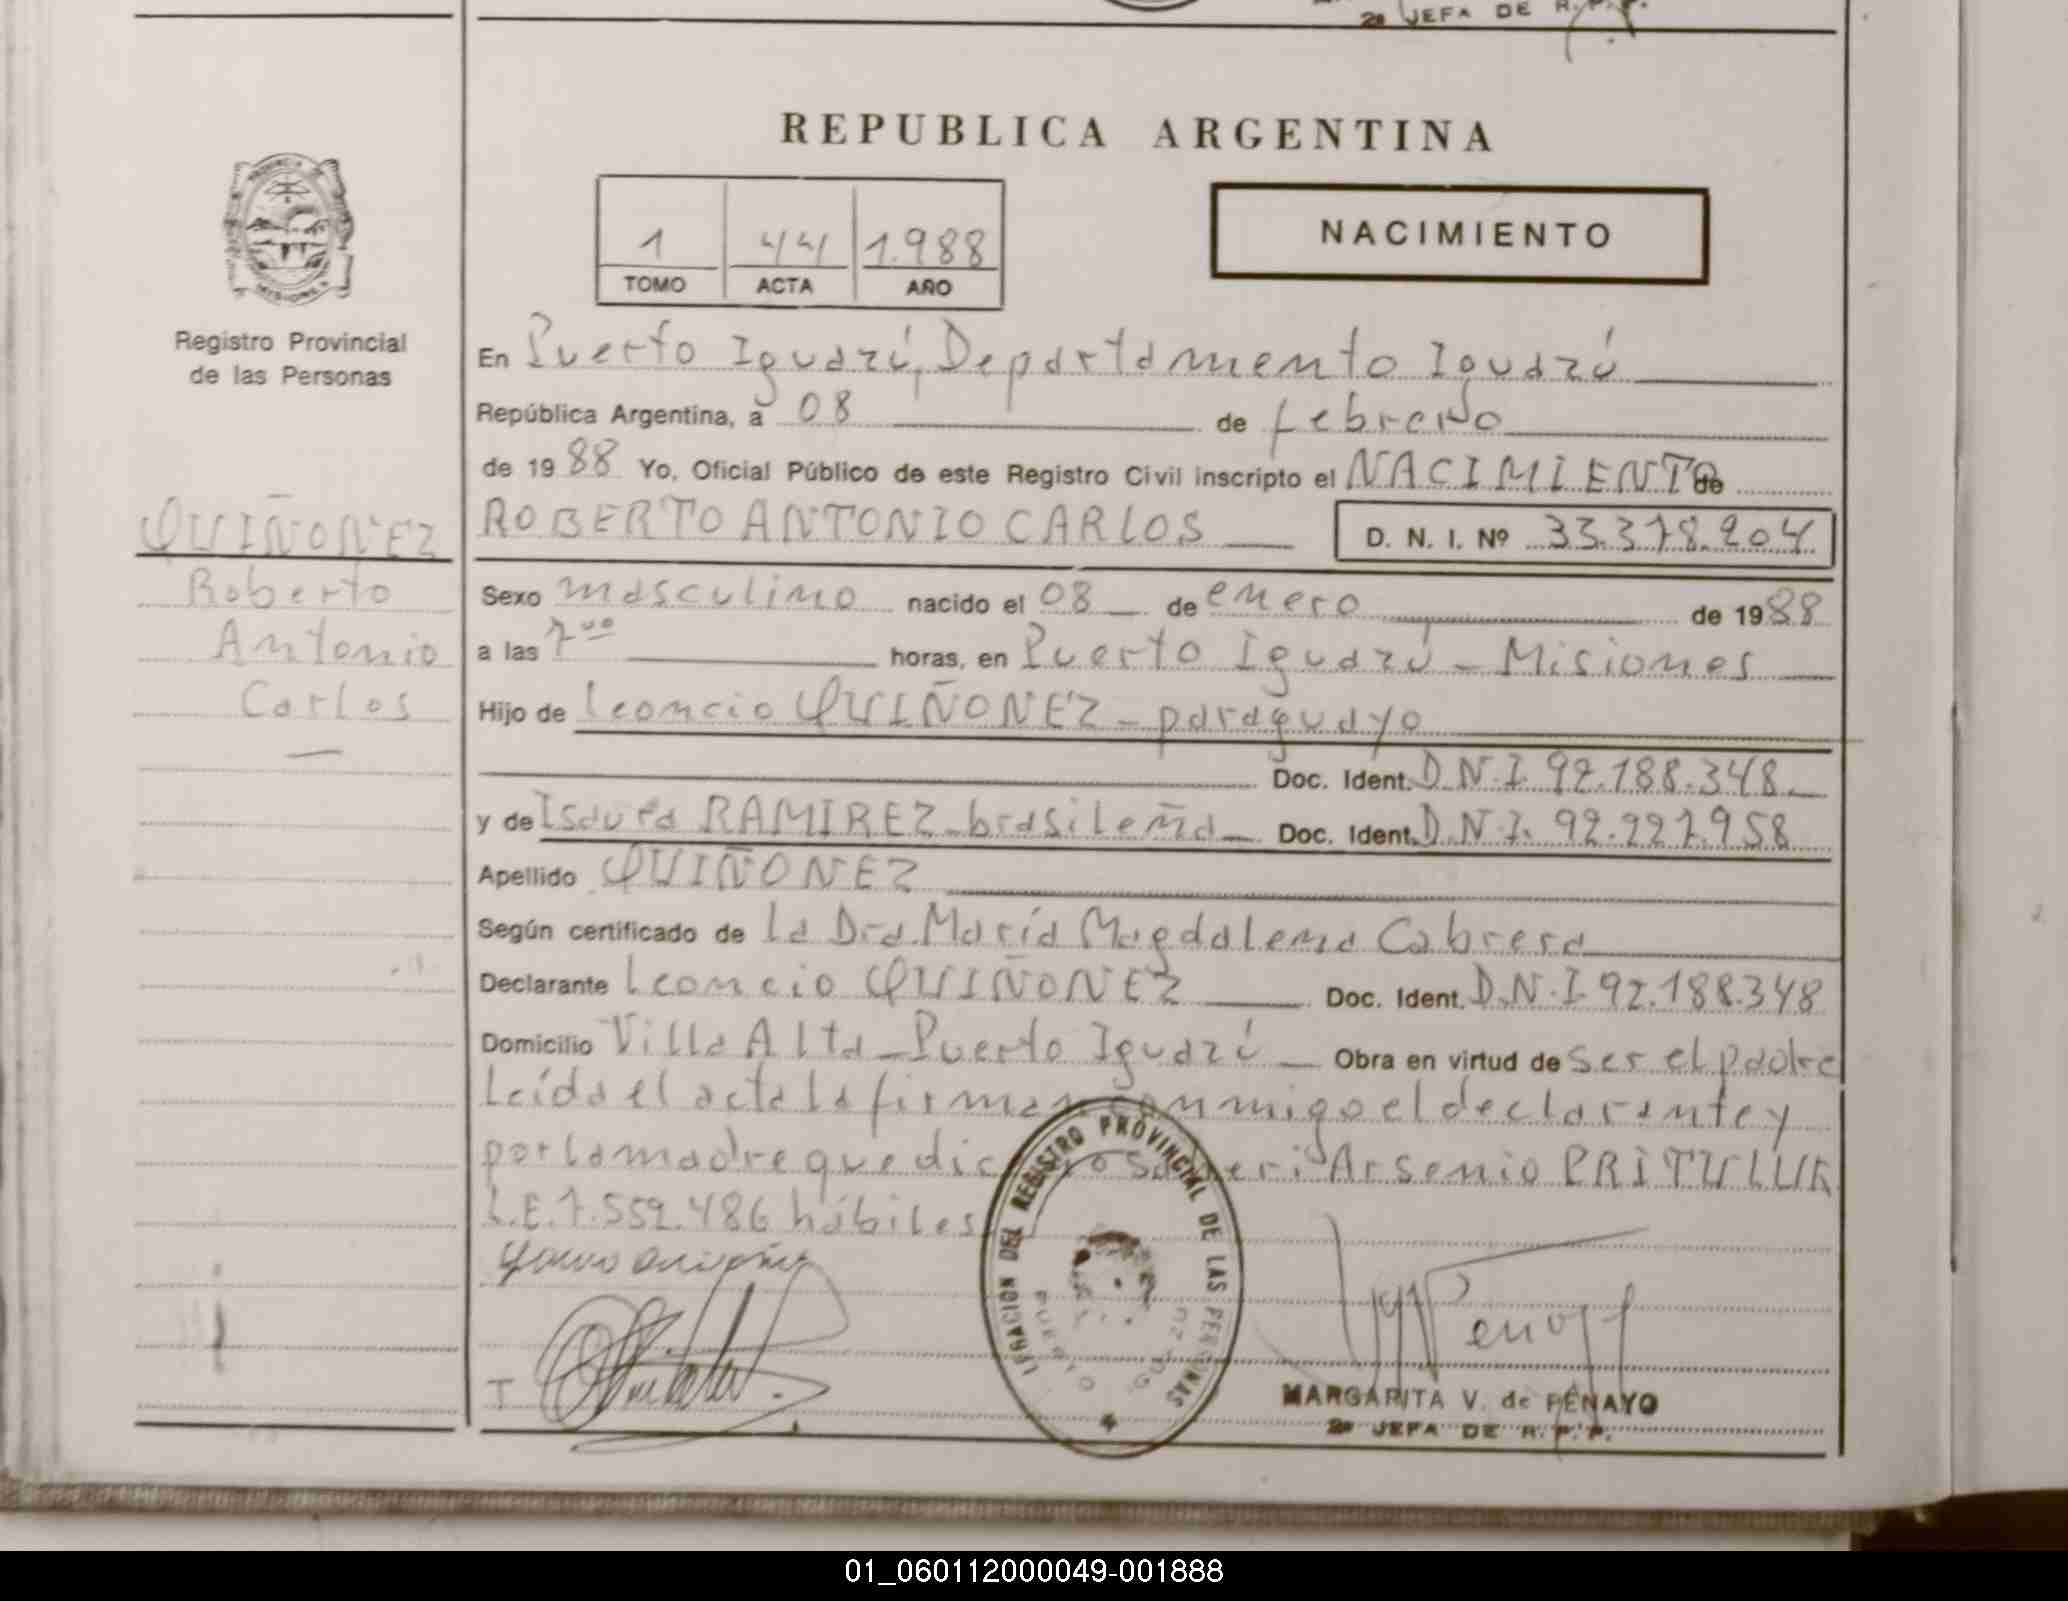 2ª JEFA DE R.P.P.
REPUBLICA ARGENTINA
PROVINCIA DE
MISIONES
1 44 1.988
TOMO ACTA AÑO
NACIMIENTO
Registro Provincial
de las Personas
En Puerto Iguazú, Departamento Iguazú
República Argentina, a 08 de febrero
de 1988 Yo, Oficial Público de este Registro Civil inscripto el NACIMIENTO de
QUIÑONEZ
Roberto
Antonio
Carlos
ROBERTO ANTONIO CARLOS D. N. I. Nº 33.378.204
Sexo masculino nacido el 08 de enero de 1988
a las 7⁰⁰ horas, en Puerto Iguazú - Misiones
Hijo de Leoncio QUIÑONEZ - paraguayo
Doc. Ident. D.N.I. 92.188.348
y de Isaura RAMIREZ - brasileña Doc. Ident. D.N.I. 92.227.958
Apellido QUIÑONEZ
Según certificado de la Dra María Magdalena Cabrera
Declarante Leoncio QUIÑONEZ Doc. Ident. D.N.I. 92.188.348
Domicilio Villa Alta - Puerto Iguazú Obra en virtud de ser el padre
Leída el acta la firman conmigo el declarante y
por la madre que dice no saber Arsenio PRITULUK
L.E. 7.552.486 hábiles
DEL REGISTRO PROVINCIAL DE LAS PERSONAS
PUERTO
T
MARGARITA V. de PENAYO
2ª JEFA DE R.P.P.
01_060112000049-001888